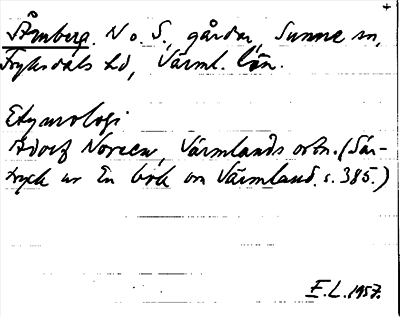 Åmberg. N o. S., gårdar, Sunne sn,
Fryksdals hd, Värml. län.
Etymologi
Adolf Noreen, Värmlands ortn. (Sär-
tryck ur En bok om Värmland. s. 385.)
E. L. 1957.